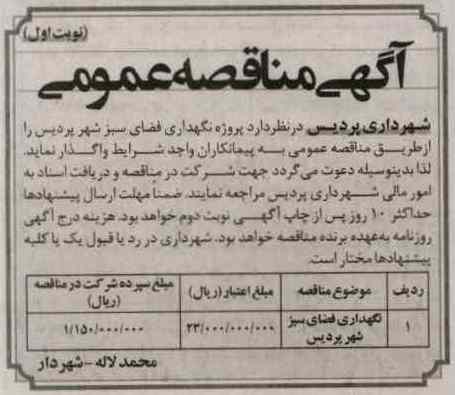 (نوبت اول)
آگهی مناقصه عمومی
شهرداری پردیس درنظر دارد پروژه نگهداری فضای سبز شهر پردیس را
از طریق مناقصه عمومی به پیمانکاران واجد شرایط واگذار نماید.
لذا بدینوسیله دعوت می‌گردد جهت شرکت در مناقصه و دریافت اسناد به
امور مالی شهرداری پردیس مراجعه نمایند. ضمناً مهلت ارسال پیشنهادها
حداکثر ۱۰ روز پس از چاپ آگهی نوبت دوم خواهد بود. هزینه درج آگهی
روزنامه به‌عهده برنده مناقصه خواهد بود. شهرداری در رد یا قبول یک یا کلیه
پیشنهادها مختار است.
ردیف موضوع مناقصه مبلغ اعتبار (ریال) مبلغ سپرده شرکت در مناقصه (ریال)
۱ نگهداری فضای سبز شهر پردیس ۲۳/۰۰۰/۰۰۰/۰۰۰ ۱/۱۵۰/۰۰۰/۰۰۰
محمد لاله - شهردار